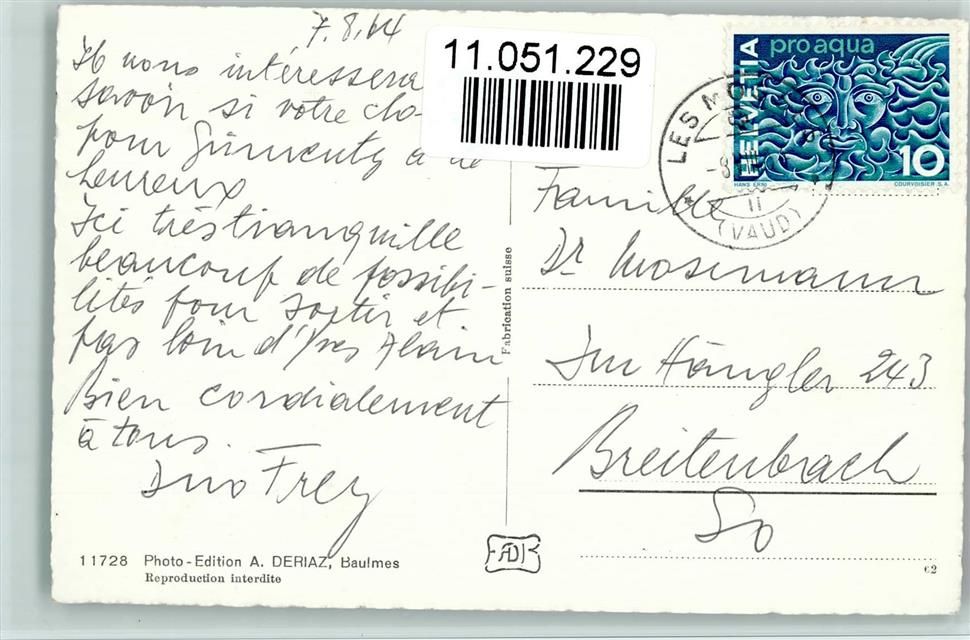 7.8.64
Il nous intéressera
savoir si votre cho-
pour Gümentz a de
heureux
Ici très tranquille
beaucoup de possibi-
lités pour sortir et
pas loin d'Yves Alain
Bien cordialement
à tous.
Duo Frey
11728 Photo-Edition A. DERIAZ, Baulmes
Reproduction interdite
11.051.229
Fabrication suisse
HELVETIA
pro aqua
10
HANS ERNI
COURVOISIER S.A.
LES MO
(VAUD)
Famille
Dr Mosimann
Im Hängler 243
Breitenbach
So
62